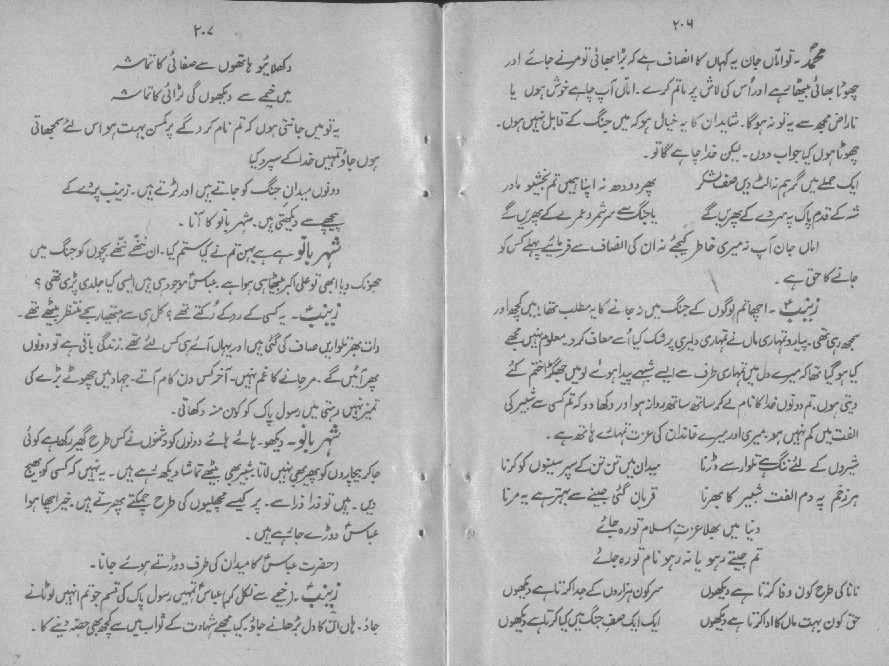 ۲۰۶
محمدؑ ۔ تو اماں جان یہ کہاں کا انصاف ہے کہ بڑا بھائی تو مرنے جائے اور
چھوٹا بھائی بیٹھا رہے اور اُس کی لاش پر ماتم کرے ۔ اماں آپ چاہے خوش ہوں یا
ناراض مجھ سے یہ تو نہ ہوگا ۔ شاید ان کا یہ خیال ہو کہ میں جنگ کے قابل نہیں ہوں۔
چھوٹا ہوں کیا جواب دوں ۔ لیکن خدا چاہے گا تو ۔
ایک حملے میں گر ہم نہ الٹ دیں صف لشکر پھر دودھ نہ اپنا ہمیں تم بخشیو مادر
شہ کے قدم پاک پہ سر دے کے پھریں گے یا جنگ سے سر شمر و عمر لے کے پھریں گے
اماں جان آپ نہ میری خاطر کیجئے نہ ان کی انصاف سے فرمائیے پہلے کس کو
جانے کا حق ہے ۔
زینبؑ ۔ اچھا تم لوگوں کے جنگ میں نہ جانے کا یہ مطلب تھا! میں کچھ اور
سمجھ رہی تھی ۔ پیارو تمہاری ماں نے تمہاری دلیری پر شک کیا اُسے معاف کر دو۔ معلوم نہیں مجھے
کیا ہو گیا تھا کہ میرے دل میں تمہاری طرف سے ایسے شبہے پیدا ہوئے لو میں جھگڑا ختم کئے
دیتی ہوں۔ تم دونوں خدا کا نام لے کر ساتھ ساتھ روانہ ہو اور دکھا دو کہ تم کسی سے شبیر کی
الفت میں کم نہیں ہو۔ میری اور میرے خاندان کی عزت تمہارے ہاتھ ہے ۔
شیروں کے لئے ننگ ہے تلوار سے ڈرنا میدان میں تن تن کے سپر سینوں کو کرنا
ہر زخم پہ دم الفت شبیر کا بھرنا قربان گئی جینے سے بہتر ہے یہ مرنا
دنیا میں بھلا عزت اسلام تو رہ جائے
تم جیتے رہو یا نہ رہو نام تو رہ جائے
نانا کی طرح کون وفا کرتا ہے دیکھوں سر کون ہزاروں کے جدا کرتا ہے دیکھوں
حق کون بہت ماں کا ادا کرتا ہے دیکھوں ایک ایک صف جنگ میں کیا کرتا ہے دیکھوں
۲۰۷
دکھلائیو ہاتھوں سے صفائی کا تماشہ
میں خیمے سے دیکھوں گی لڑائی کا تماشہ
یہ تو میں جانتی ہوں کہ تم نام کرو گے پر کمسن بہت ہو اس لئے سمجھاتی
ہوں جاؤ تمہیں خدا کے سپرد کیا
دونوں میدانِ جنگ کو جاتے ہیں اور لڑتے ہیں ۔ زینب پردے کے
پیچھے سے دیکھتی ہیں۔ شہر بانو کا آنا ۔
شہر بانو ہے ہے بہن تم نے کیا ستم کیا ۔ ان ننھے ننھے بچوں کو جنگ میں
جھونک دیا ابھی تو علی اکبر بیٹھا ہی ہوا ہے ۔ عباسؑ موجود ہی ہیں ایسی کیا جلدی پڑی تھی ؟
زینبؑ ۔ یہ کسی کے روکے رُکتے تھے ؟ کل ہی سے ہتھیار سجے منتظر بیٹھے تھے ۔
رات بھر تلواریں صاف کی گئی ہیں اور یہاں آئے ہی کس لئے تھے ۔ زندگی باقی ہے تو دونوں
پھر آئیں گے ۔ مر جانے کا غم نہیں ۔ آخر کس دن کام آتے ۔ جہاد میں چھوٹے بڑے کی
تمیز نہیں رہتی میں رسول پاک کو کون منہ دکھاتی ۔
شہر بانو ۔ دیکھو ۔ ہائے ہائے دونوں کو دشمنوں نے کس طرح گھیر رکھا ہے کوئی
جا کر بیچاروں کو پھیر بھی نہیں لاتا شبیر بھی بیٹھے تماشا دیکھ رہے ہیں ۔ یہ نہیں کہ کسی کو بھیج
دیں ۔ ہیں تو ذرا ذرا سے ۔ پر کیسے مچھلیوں کی طرح چمکتے پھرتے ہیں ۔ خیر اچھا ہوا
عباسؑ دوڑے جا رہے ہیں ۔
(حضرت عباسؑ کا میدان کی طرف دوڑتے ہوئے جانا ۔
زینبؑ ۔ (خیمے سے نکل کر) عباسؑ تمہیں رسول پاک کی قسم جو تم انہیں لوٹانے
جاؤ ۔ ہاں ان کا دل بڑھانے جاؤ ۔ کیا مجھے شہادت کے ثواب میں سے کچھ بھی حصّہ دینے کا ۔